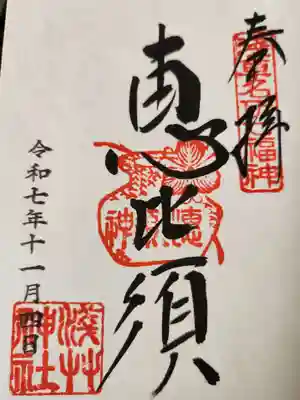 奉拝
浅草名所七福神
恵比須
令和七年十一月四日
浅草神社